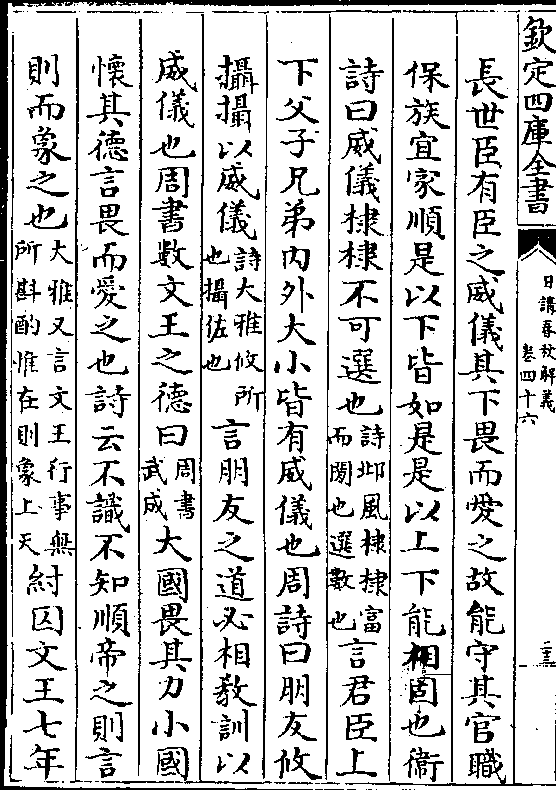 欽定四庫全書
日講春秋解義
卷四十六
三
長世臣有臣之威儀其下畏而愛之故能守其官職
保族宜家順是以下皆如是是以上下能相固也衛
詩曰威儀棣棣不可選也詩邶風棣棣富而閑也選數也言君臣上
下父子兄弟內外大小皆有威儀也周詩曰朋友攸
攝攝以威儀詩大雅攸所也攝佐也言朋友之道必相教訓以
威儀也周書數文王之德曰周書武成大國畏其力小國
懷其德言畏而愛之也詩云不識不知順帝之則言
則而象之也大雅又言文王行事無所斟酌惟在則象上天紂囚文王七年